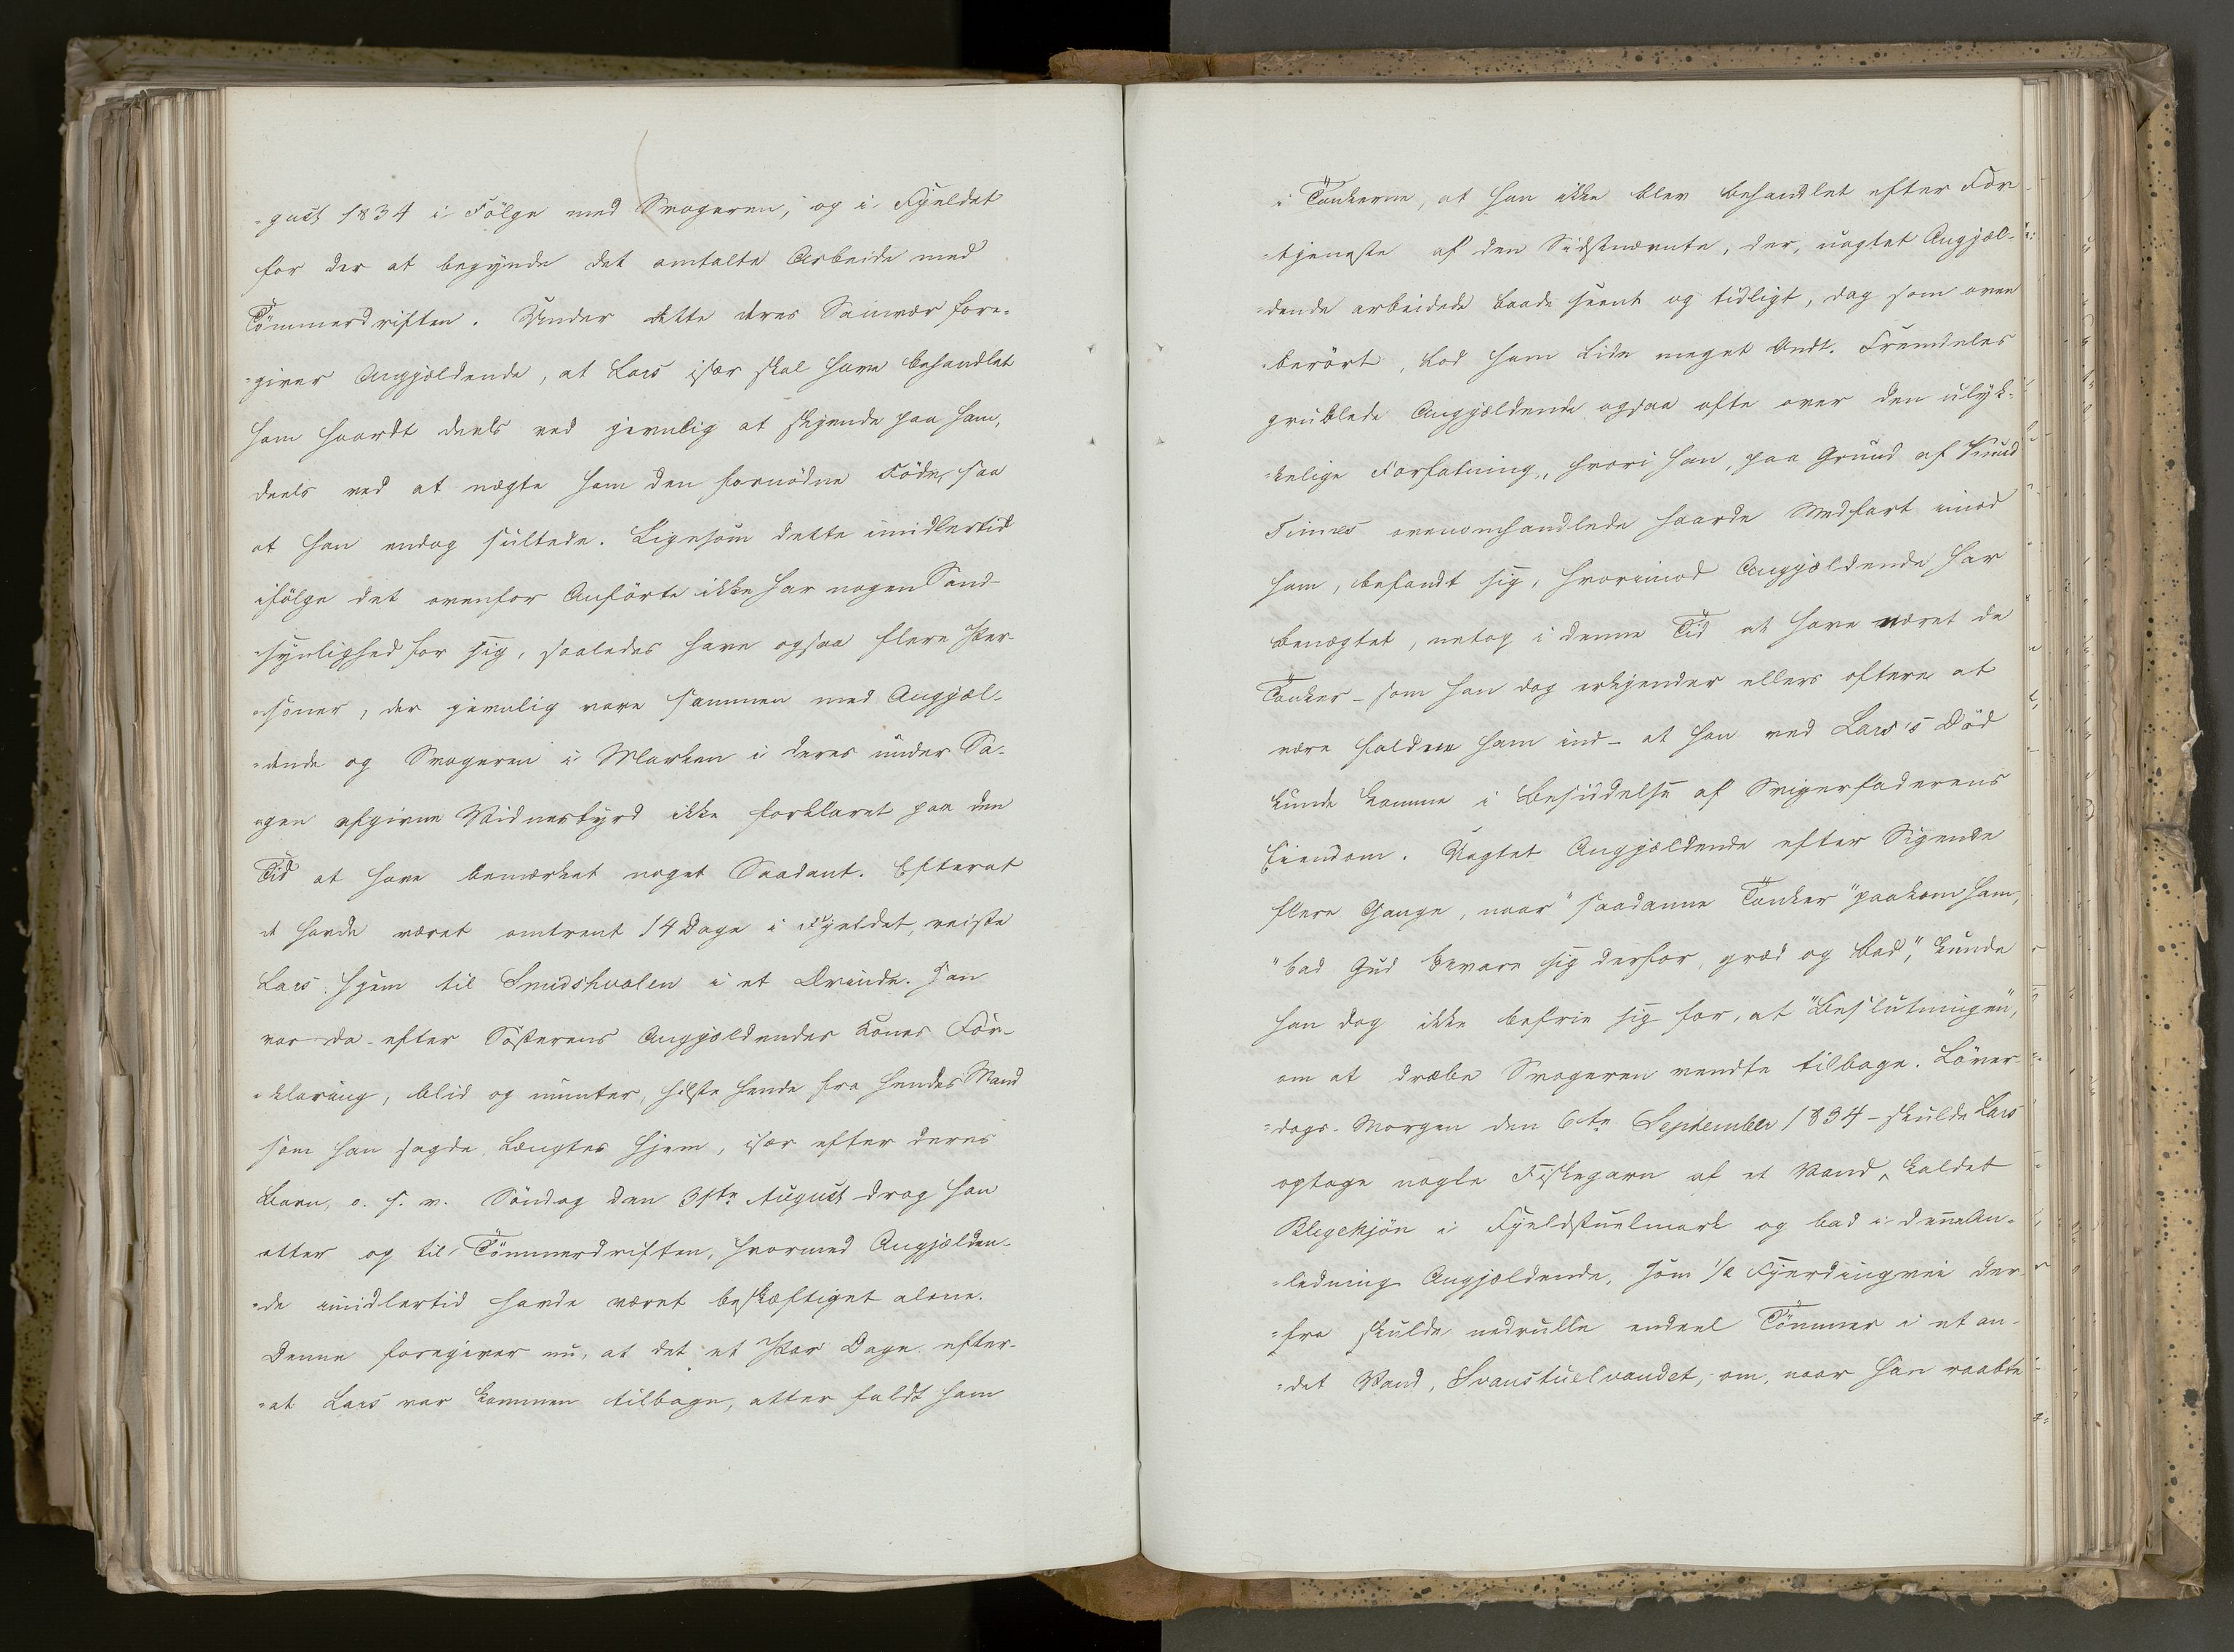 -gust 1834 i Fölge med Svogeren, op i Fjeldet
for der at begynde det omtalte Arbeide med
Tömmerdriften. Under dette deres Samvær fore-
-giver Angjældende, at Lars især skal have behandlet
ham haardt deels ved jevnlig at skjende paa ham,
deels ved at nægte ham den fornödne Föde, saa
at han endog sültede. Ligesom dette imidlertid
ifölge det ovenfor Anförte ikke har nogen Sand-
-synlighed for sig, saaledes have ogsaa flere Per-
-soner, der jevnlig vare sammen med Angjæl-
-dende og Svogeren i Marken i deres under Sa-
-gen afgivne Vidnesbyrd ikke forklaret paa den
Tid at have bemærket noget Saadant. Efterat
de havde været omtrent 14 Dage i Fjeldet, reiste
Lars hjem til Smidshvalen i et Ærinde. Han
var da efter Söstrens Angjældendes Kones For-
-klaring, blid og munter, hilste hende fra hendes Mand
som han sagde længtes hjem, især efter deres
Barn, o. s. v. Söndag den 31te August drog han
atter op til Tömmerdriften, hvormed Angjælden-
-de imidlertid havde været beskæftiget alene.
Denne foregiver nu, at det et Par Dage efter-
-at Lars var kommen tilbage, atter faldt ham
i Tankerne, at han ikke blev behandlet efter For-
-tjeneste af den Sidstnævnte, der, uagtet Angjæl-
-dende arbeidede baade seent og tidligt, dog som oven
berört, lod ham lide meget Ondt. Fremdeles
grublede Angjældende ogsaa ofte over den ulyk-
-kelige Forfatning, hvori han, paa Grund af Knud
Finnes ovenomhandlede haarde Medfart imod
ham, befandt sig, hvorimod Angjældende har
benægtet, netop i denne Tid at have næret de
Tanker – som han dog erkjender ellers oftere at
være faldne ham ind – at han ved Lars's Död
kunde komme i Besiddelse af Svigerfaderens
Eiendom. Uagtet Angjældende efter Sigende
flere Gange, naar "saadanne Tanker" paakom ham,
"bad Gud bevare sig derfor, græd og bad", kunde
han dog ikke befrie sig for, at "Beslutningen",
om at dræbe Svogeren vendte tilbage. Löver-
-dags-Morgen den 6te September 1834 – skulde Lars
optage nogle Fiskegarn af et Vand, kaldet
Blegekjön i Fjeldstuelmark og bad i denne An-
-ledning Angjældende, som 1/2 Fjerdingvei der
-fra skulde nedrulle endeel Tömmer i et an-
-det Vand, Svanstuelvandet, om, naar han raabte